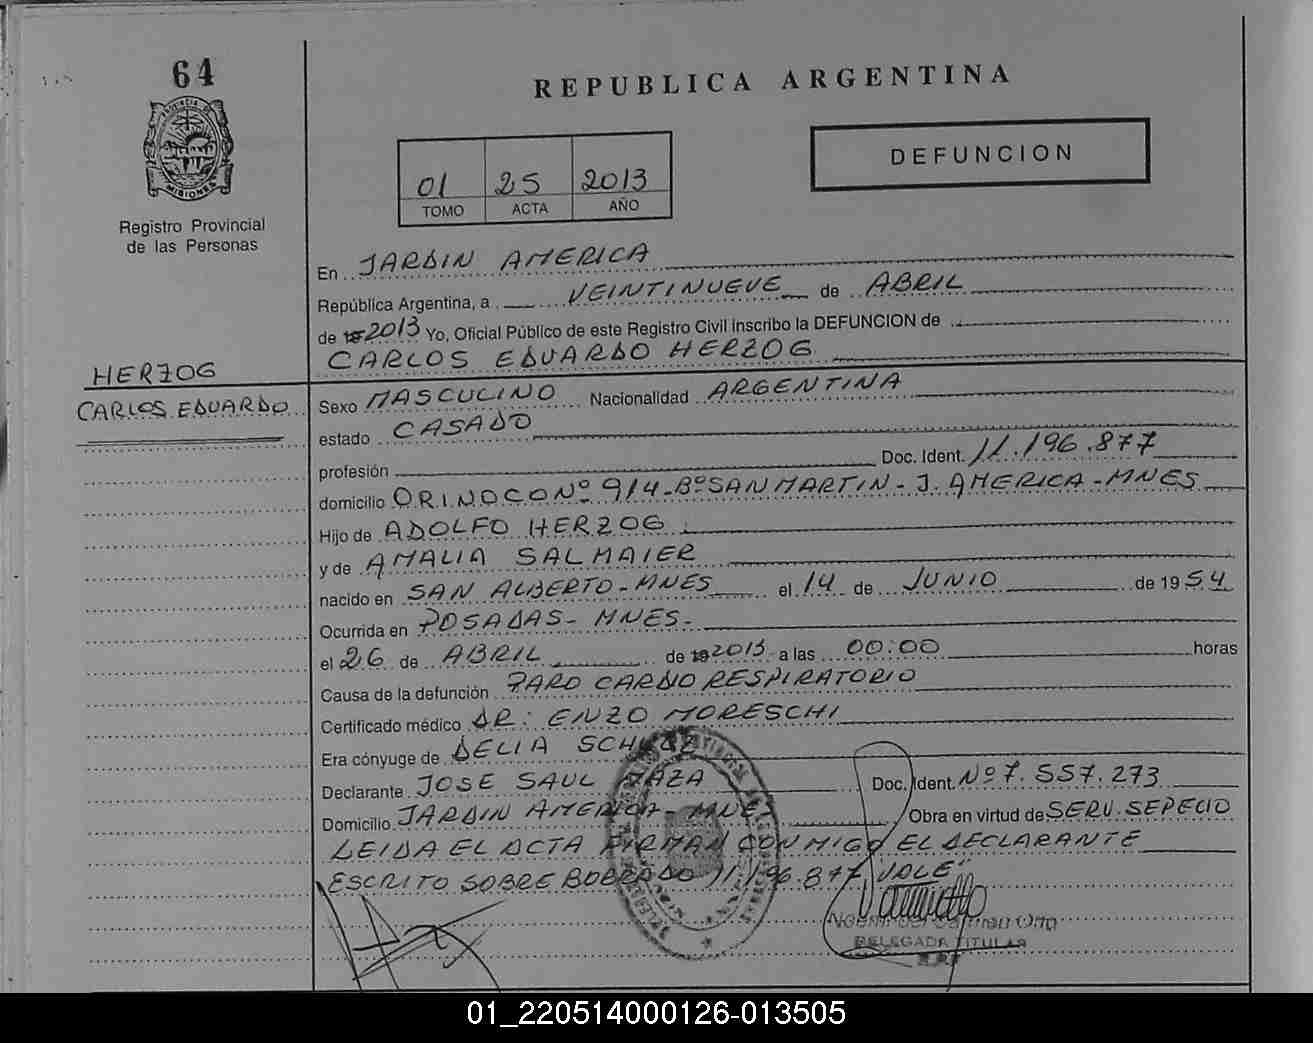 64
REPUBLICA ARGENTINA
PROVINCIA DE
MISIONES
Registro Provincial
de las Personas
DEFUNCION
01 25 2013
TOMO ACTA AÑO
En JARDIN AMERICA
República Argentina, a VEINTINUEVE de ABRIL
de 2013 Yo, Oficial Público de este Registro Civil inscribo la DEFUNCION de
CARLOS EDUARDO HERZOG
HERZOG
CARLOS EDUARDO
Sexo MASCULINO Nacionalidad ARGENTINA
estado CASADO
profesión Doc. Ident. 11.196.877
domicilio ORINOCO Nº 914-Bº SAN MARTIN - J. AMERICA - MNES
Hijo de ADOLFO HERZOG
y de AMALIA SALMAIER
nacido en SAN ALBERTO - MNES el 14 de JUNIO de 1954
Ocurrida en POSADAS - MNES -
el 26 de ABRIL de 2013 a las 00:00 horas
Causa de la defunción PARO CARDIO RESPIRATORIO
Certificado médico DR: ENZO MORESCHI
Era cónyuge de DELIA
Declarante JOSE SAUL MAZA Doc. Ident. Nº 7.557.273
Domicilio JARDIN AMERICA - MNES Obra en virtud de SERV. SEPECIO
LEIDA EL ACTA FIRMAN CONMIGO EL DECLARANTE
ESCRITO SOBRE BORRADO 11.196.877 VALE"
DELEGADA TITULAR
01_220514000126-013505